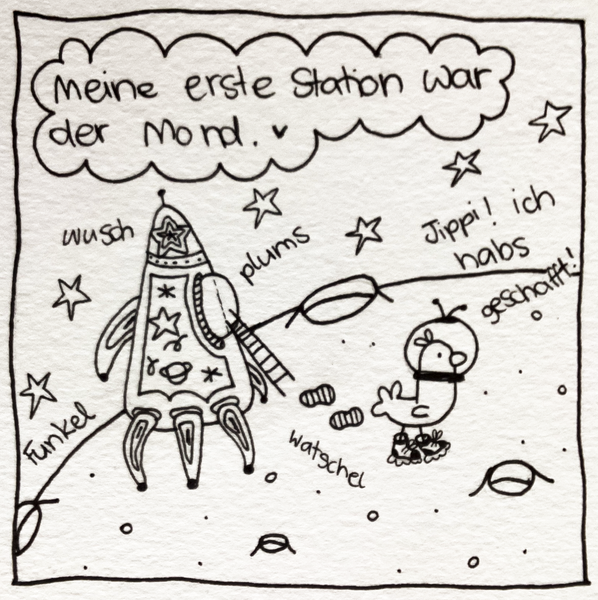 Meine erste Station war
der Mond.
wusch
plums
Jippi! ich
habs
geschafft!
Funkel
watschel